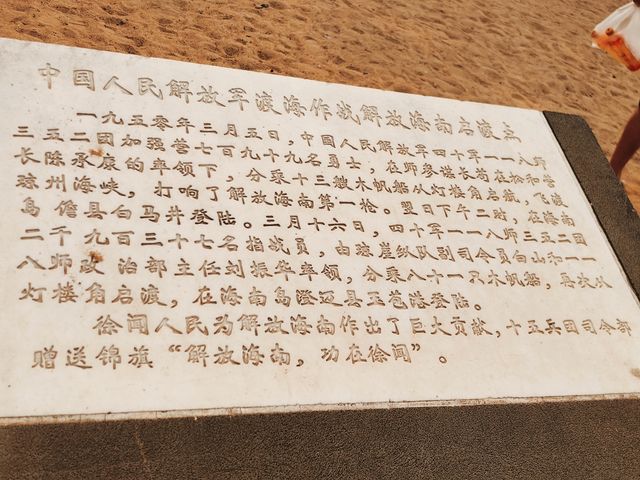 中国人民解放军渡海作战解放海南启渡点
一九五零年三月五日，中国人民解放军四十军一一八师
三五二团加强营七百九十九名勇士，在师参谋长苟在松和营
长陈承康的率领下，分乘十三艘木帆船从灯楼角启航，飞渡
琼州海峡，打响了解放海南第一枪。翌日下午二时，在海南
岛 儋县白马井登陆。三月十六日，四十军一一八师三五二团
二千九百三十七名指战员，由琼崖纵队副司令员白山和一一
八师政 治部主任刘振华率领，分乘八十一只木帆船，再次从
灯楼角启渡，在海南岛澄迈县玉包港登陆。
徐闻人民为解放海南作出了巨大贡献，十五兵团司令部
赠送锦旗“解放海南，功在徐闻”。